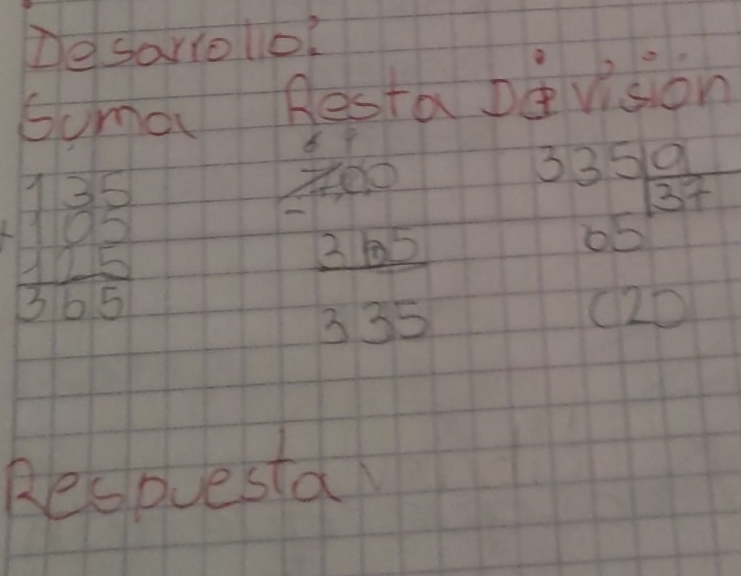 Desarrollo:
Suma Resta División
135
+ 105
125
365
6 9
700
- 365
335
335 9
37
65
(2)
Respuesta